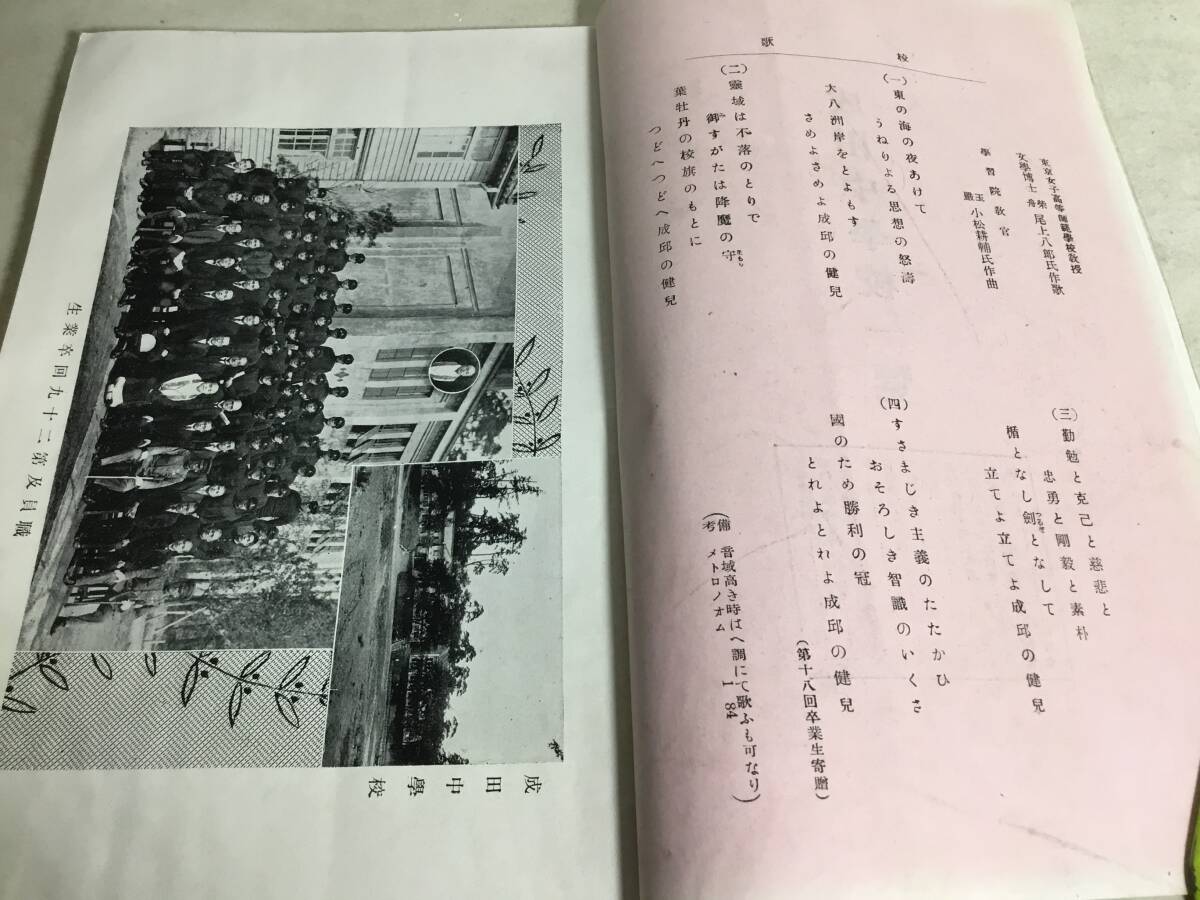 校歌
東京女子高等師範學校敎授
文學博士 柴舟 尾上八郎氏作歌
學習院敎官
玉巖 小松耕輔氏作曲
(一)東の海の夜あけて
うねりよる思想の怒濤
大八洲岸をとよもす
さめよさめよ成邱の健兒
(二)靈域は不落のとりで
御すがたは降魔の守
まもり
葉牡丹の校旗のもとに
つどへつどへ成邱の健兒
(三)勤勉と克己と慈悲と
忠勇と剛毅と素朴
楯となし劍となして
つるぎ
立てよ立てよ成邱の健兒
(四)すさまじき主義のたたかひ
おそろしき智識のいくさ
國のため勝利の冠
とれよとれよ成邱の健兒
(第十八回卒業生寄贈)
(備考 音域高き時はヘ調にて歌ふも可なり)
メトロノオム 1 84
成田中學校
職員及第二十九回卒業生